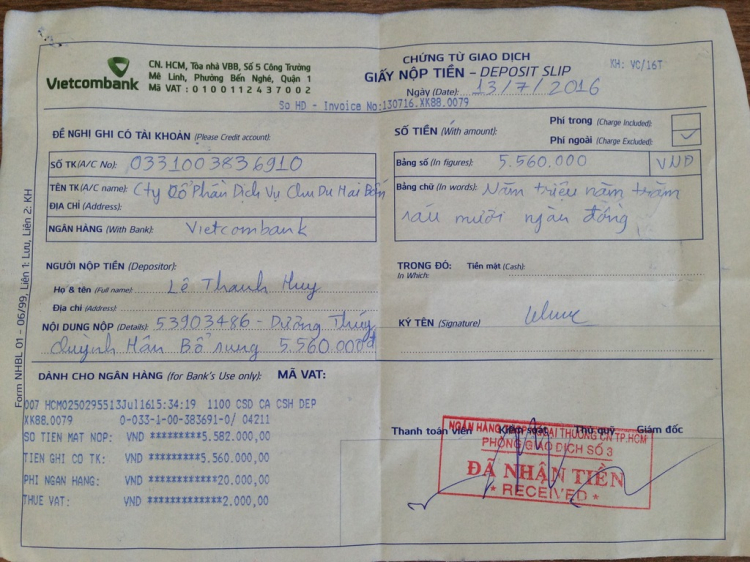 Vietcombank
CN. HCM, Tòa nhà VBB, Số 5 Công Trường
Mê Linh, Phường Bến Nghé, Quận 1
Mã VAT : 0100112437002
CHỨNG TỪ GIAO DỊCH
GIẤY NỘP TIỀN - DEPOSIT SLIP
KH: VC/16T
Ngày (Date): 13/7/2016
So HD - Invoice No:130716.XK88.0079
ĐỀ NGHỊ GHI CÓ TÀI KHOẢN (Please Credit account):
SỐ TK(A/C No): 0331003836910
TÊN TK(A/C name): Cty Cổ Phần Dịch Vụ Chu Du
ĐỊA CHỈ (Address):
NGÂN HÀNG (With Bank): Vietcombank
SỐ TIỀN (With amount):
Phí trong (Charge Included):
Phí ngoài (Charge Excluded): ✓
Bằng số (In figures): 5.560.000 VND
Bằng chữ (In words): Năm triệu năm trăm
sáu mươi ngàn đồng
NGƯỜI NỘP TIỀN (Depositor):
Họ & tên (Full name): Lê Thanh Huy
Địa chỉ (Address):
NỘI DUNG NỘP (Details): 53903486 - Dương Thúy
Quỳnh Hân Bổ sung 5.560.000đ
TRONG ĐÓ: Tiền mặt (Cash):
In Which:
KÝ TÊN (Signature)
Form NHBL 01 - 06/99, Liên 1: Lưu, Liên 2: KH
DÀNH CHO NGÂN HÀNG (for Bank's Use only): MÃ VAT:
007 HCM0250295513Jul1615:34:19 1100 CSD CA CSH DEP
XK88.0079 0-033-1-00-383691-0/ 04211
SO TIEN MAT NOP: VND *********5.582.000,00
TIEN GHI CO TK: VND *********5.560.000,00
PHI NGAN HANG: VND ************20.000,00
THUE VAT: VND *************2.000,00
Thanh toán viên Kiểm soát Thủ quỹ Giám đốc
NGÂN HÀNG NGOẠI THƯƠNG CN TP.HCM
PHÒNG GIAO DỊCH SỐ 3
ĐÃ NHẬN TIỀN
* RECEIVED *